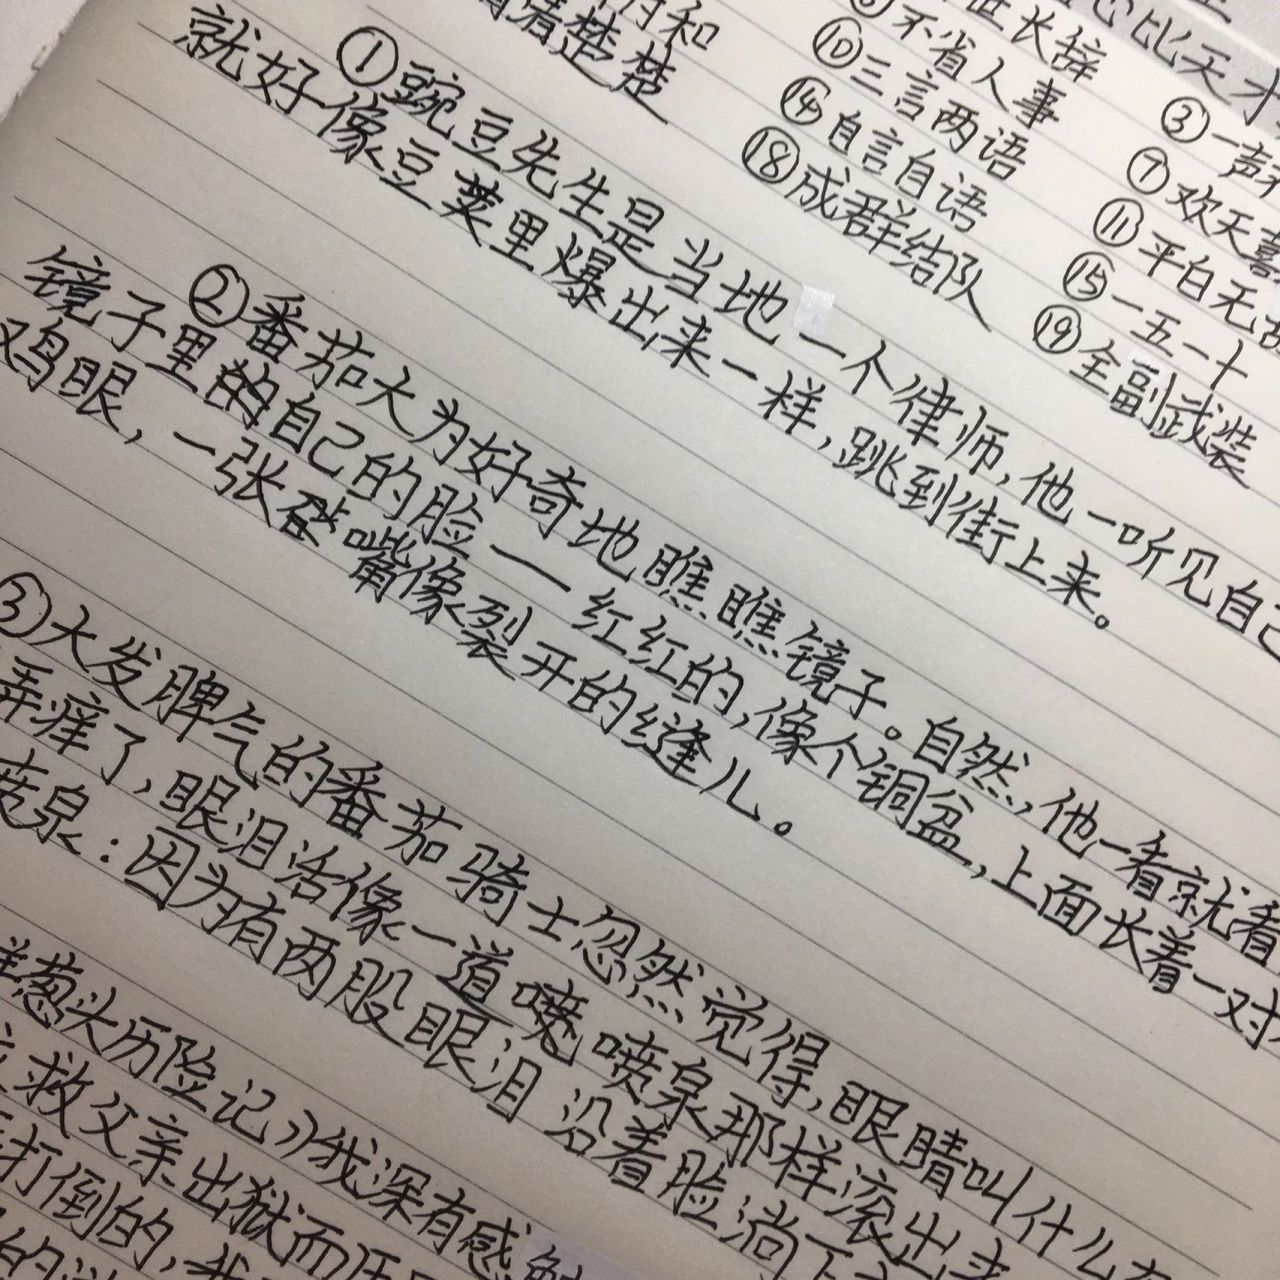 心比天才
世长辞
③一声
⑦欢天喜
⑪平白无故
⑮一五一十
⑲全副武装
不省人事
⑩三言两语
⑭自言自语
⑱成群结队
和
清楚楚
①豌豆先生是当地一个律师,他一听见自己
就好像豆荚里爆出来一样,跳到街上来。
②番茄大为好奇地瞧瞧镜子。自然,他一看就看
镜子里的自己的脸——红红的,像个铜盆,上面长着一对
鸡眼,一张嘴像裂开的缝儿。
③大发脾气的番茄骑士忽然觉得,眼睛叫什么
弄痒了,眼泪活像一道喷泉那样滚出来
喷泉:因为有两股眼泪沿着脸淌下
洋葱头历险记》我深有感触
救父亲出狱而
打倒的,我
的